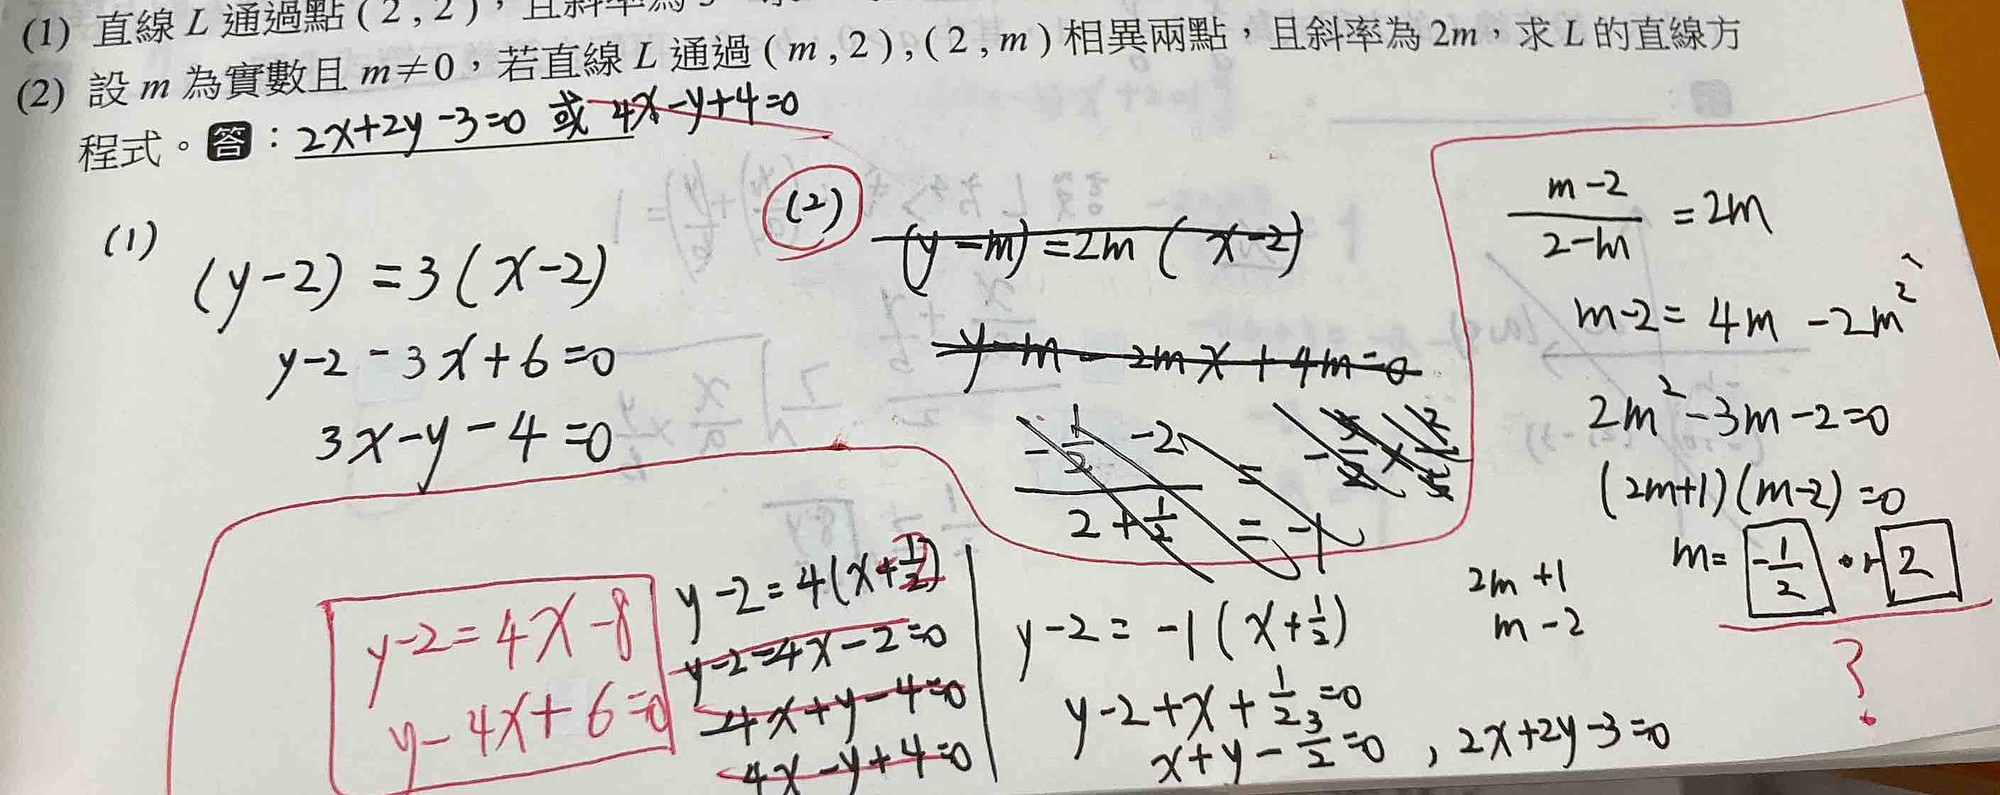 (1) 直線 L 通過點 ( 2 , 2 )，且斜率為 3
(2) 設 m 為實數且 m≠0，若直線 L 通過 ( m , 2 ) , ( 2 , m ) 相異兩點，且斜率為 2m，求 L 的直線方
程式。答：2x+2y-3=0 或 4x-y+4=0
(1)
(y-2) = 3(x-2)
y-2-3x+6=0
3x-y-4=0
(2)
(y-m)=2m(x-2)
y-m-2mx+4m=0
-1/2 -2
2+1/2 = -1
m-2/2-m = 2m
m-2 = 4m-2m²
2m²-3m-2=0
(2m+1)(m-2)=0
m= -1/2 or 2
?
2m+1
m-2
y-2=4x-8
y-4x+6=0
y-2=4(x+1/2)
y-2=4x-2=0
-4x+y-4=0
4x-y+4=0
y-2=-1(x+1/2)
y-2+x+1/2=0
x+y-3/2=0 , 2x+2y-3=0